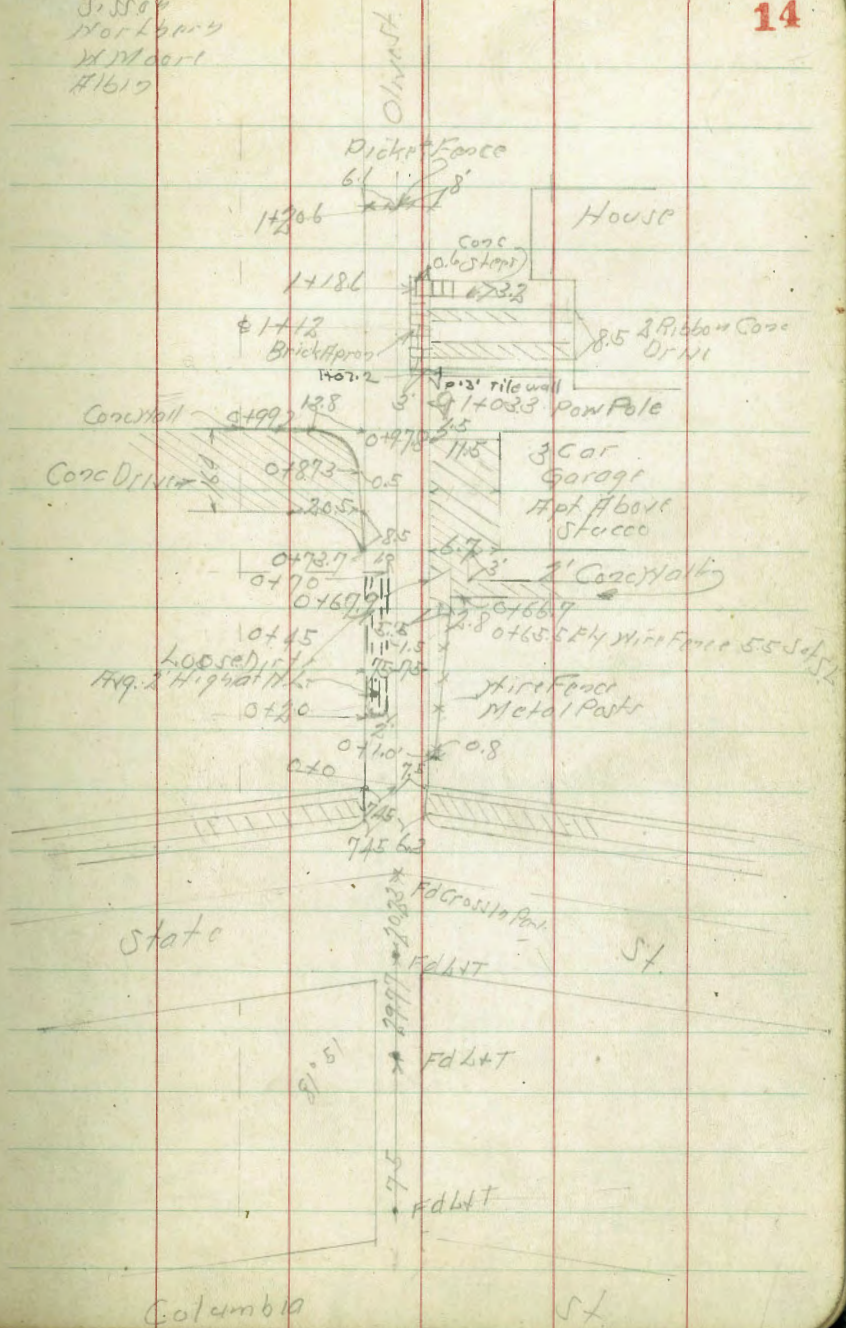 14
Sisson
Northern
W Moore
Albin
Olive St
Picket Fence
6.1
8'
1+20.6
House
Conc
0.6 (Steps)
1+18.6
13.2
¢ 1+12
8.5 2 Ribbon Conc
Drive
Brick Apron
1+07.2
3' tile wall
3'
1+03.3 Pow Pole
Conc Wall
0+99.2
13.8
0+97.8
2.5
11.5
3 Car
Garage
Apt Above
Stucco
Conc Drive
16.0
0+87.3
0.5
20.5
8.5
0+73.7
6.7
3'
2' Conc Wall
0+70
0+67.9
0+66.7
2.8
0+65.5 Ely Wire Fence 5.5
0+45
5.5
1.5
Loose Dirt
Avg. 2' High at N.L.
7.5 7.5
Wire Fence
Metal Posts
0+20
2'
0+1.0
0.8
0+0
7.5
7.45
7.45 6.3
Fd Cross In Pav.
20.23
State St.
Fd L+T
29.77
81° 51'
Fd L+T
7.5
Fd L+T
Columbia St